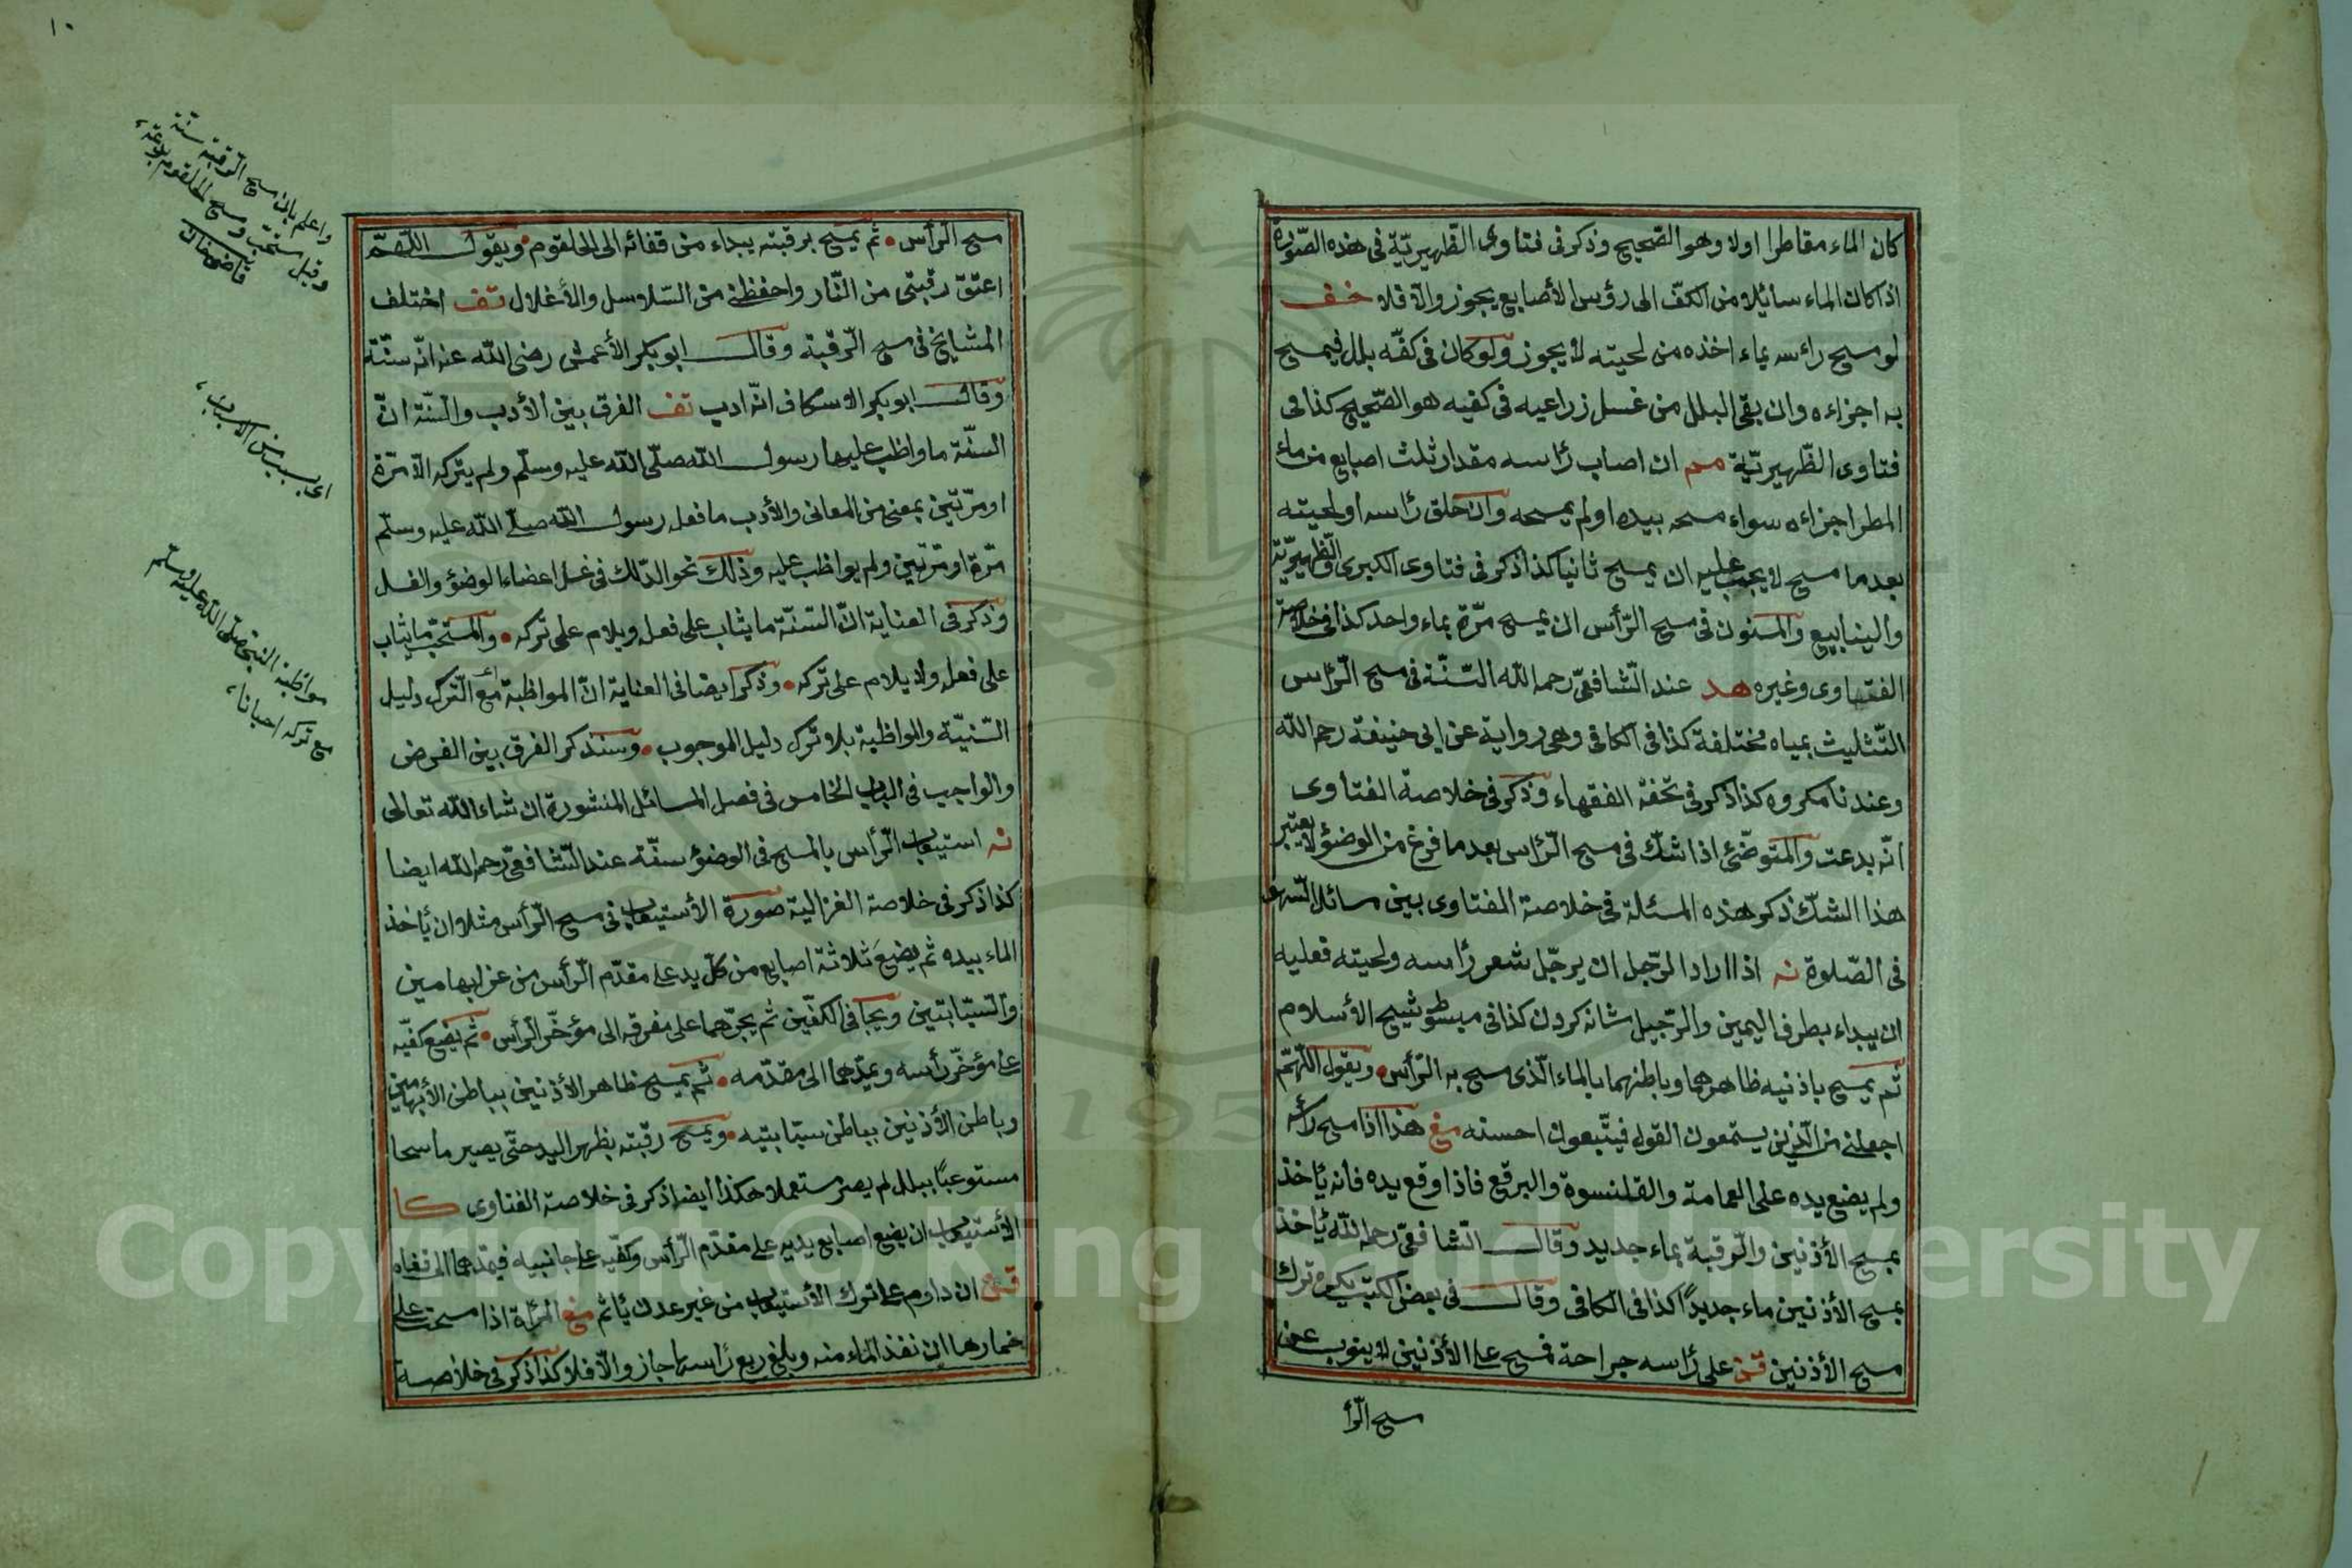 كان الماء مقاطرا اولا وهو الصّحيح وذكر فى فتاوى الظّهيريّة فى هذه الصّورة
اذا كان الماء سائلا من الكفّ الى رؤس الأصابع يجوز والّا فلا خف
لو مسح رأسه بماء اخذه من لحيته لا يجوز ولو كان فى كفّه بلل فيمسح
به اجزاءه وان بقى البلل من غسل زراعيه فى كفيه هو الصّحيح كذا فى
فتاوى الظّهيريّة مم ان اصاب رأسه مقدار ثلث اصابع من ماء
المطر اجزاءه سواء مسحه بيده او لم يمسحه وان حلق رأسه او لحيته
بعد ما مسح لا يجب عليه ان يمسح ثانيا كذا ذكر فى فتاوى الكبرى والظّهيريّة
والينابيع والمسنون فى مسح الرّأس ان يمسح مرّة بماء واحد كذا فى خلاصة
الفتاوى وغيره هد عند الشّافعىّ رحمه الله السّنّة فى مسح الرّأس
التّثليث بمياه مختلفة كذا فى الكافى وهى رواية عن ابى حنيفة رحمه الله
وعندنا مكروه كذا ذكر فى تحفة الفقهاء وذكر فى خلاصة الفتاوى
انّه بدعت والمتوضّئ اذا شكّ فى مسح الرّأس بعد ما فرغ من الوضوء لا يعتبر
هذا الشكّ ذكر هذه المسئلة فى خلاصة الفتاوى بين مسائل السّهو
فى الصّلوة نه اذا اراد الرّجل ان يرجّل شعر رأسه ولحيته فعليه
ان يبداء بطرف اليمين والترّجيل شانه كردن كذا فى مبسوط شيخ الأسلام
ثم يمسح باذنيه ظاهرهما وباطنهما بالماء الّذى مسح به الرّأس ويقول اللّهمّ
اجعلنى من الّذين يستمعون القول فيتّبعون احسنه مغ هذا اذا مسح رأسه
ولم يضع يده على العمامة والقلنسوة والبرقع فاذا وقع يده فانه يأخذ
بمسح الأذنين والرّقبة بماء جديد وقال الشّافعىّ رحمه الله يأخذ
بمسح الأذنين ماء جديدًا كذا فى الكافى وقال فى بعض الكتب يكره ترك
مسح الأذنين قن على رأسه جراحة فمسح على الأذنين لا ينوب عن
مسح الرّأ
١٠
مسح الرّأس ثم يمسح برقبته يبداء من قفائه الى الحلقوم ويقول اللّهمّ
اعتق رقبتى من النّار واحفظنى من السّلاسل والأغلال تف اختلف
المشايخ فى مسح الرّقبة وقال ابو بكر الأعمش رضى الله عنه انّه سنّة
وقال ابو بكر الاسكاف انّه ادب تف الفرق بين الأدب والسّنّة انّ
السنّة ما واظب عليها رسول الله صلّى الله عليه وسلّم ولم يتركه الّا مرّة
او مرّتين بمعنى من المعانى والأدب ما فعله رسول الله صلّى الله عليه وسلّم
مرّة او مرّتين ولم يواظب عليه وذلك نحو الدّلك فى غسل اعضاء الوضوء والغسل
وذكر فى العناية انّ السّنّة ما يثاب على فعله ويلام على تركه والمستحبّ ما يثاب
على فعله ولا يلام على تركه وذكر ايضا فى العناية انّ المواظبة مع التّرك دليل
السّنيّة والمواظبة بلا ترك دليل الموجوب وسنذكر الفرق بين الفرض
والواجب فى الباب الخامس فى فصل المسائل المنشورة ان شاء الله تعالى
نه استيعاب الرّأس بالمسح فى الوضوء سنّة عند الشّافعىّ رحمه الله ايضا
كذا ذكر فى خلاصة الغزالية صورة الأستيعاب فى مسح الرّأس مثلا ان يأخذ
الماء بيده ثم يضع ثلاثة اصابع من كلّ يد على مقدّم الرّأس من غير ابهامين
والسّبّابتين ويجافى الكفّين ثم يجرّهما على مفرقه الى مؤخّر الرأس ثم يضع كفّيه
على مؤخّر رأسه ويمدّهما الى مقدّمه ثم يمسح ظاهر الأذنين بباطن الأبهامين
وباطن الأذنين بباطن سبّابتيه ويمسح رقبته بظهر اليد حتّى يصير ماسحا
مستوعبًا ببلل لم يصر مستعملا هكذا ايضا ذكر فى خلاصة الفتاوى كا
الأستيعاب ان يضع اصابع يديه على مقدّم الرّأس وكفّيه على جانبيه فيمدّهما الى قفاه
قن ان داوم على ترك الأستيعاب من غير عذر يأثم مغ المرأة اذا مسحت على
خمارها ان نفذ الماء منه وبلغ ربع رأسها جاز والّا فلا كذا ذكر فى خلاصة
واعلم بان مسح الرّقبة سنّة
وقيل مستحبّ ومسح الحلقوم بدعة
قاضيخان
اى بسبب من الاسباب
مواظبة النبى صلّى الله عليه وسلّم
مع تركه احيانا
Copyright © King Saud University
195